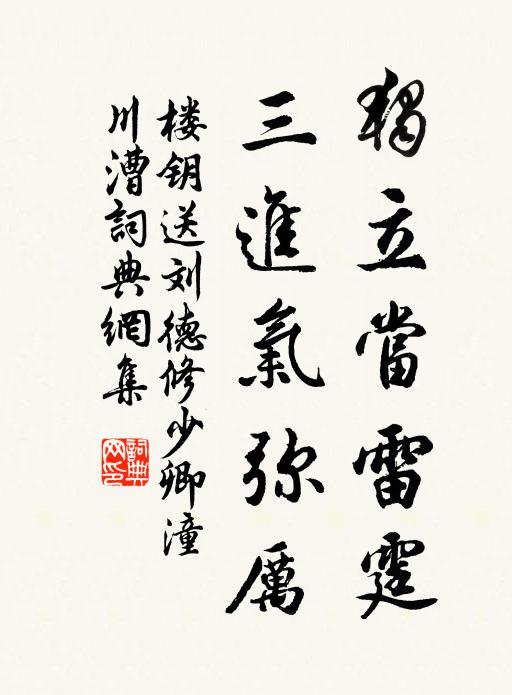 獨立當雷霆
三進氣弥厲
楼钥送刘德修少卿潼
川漕詞典網集
詞典
网印